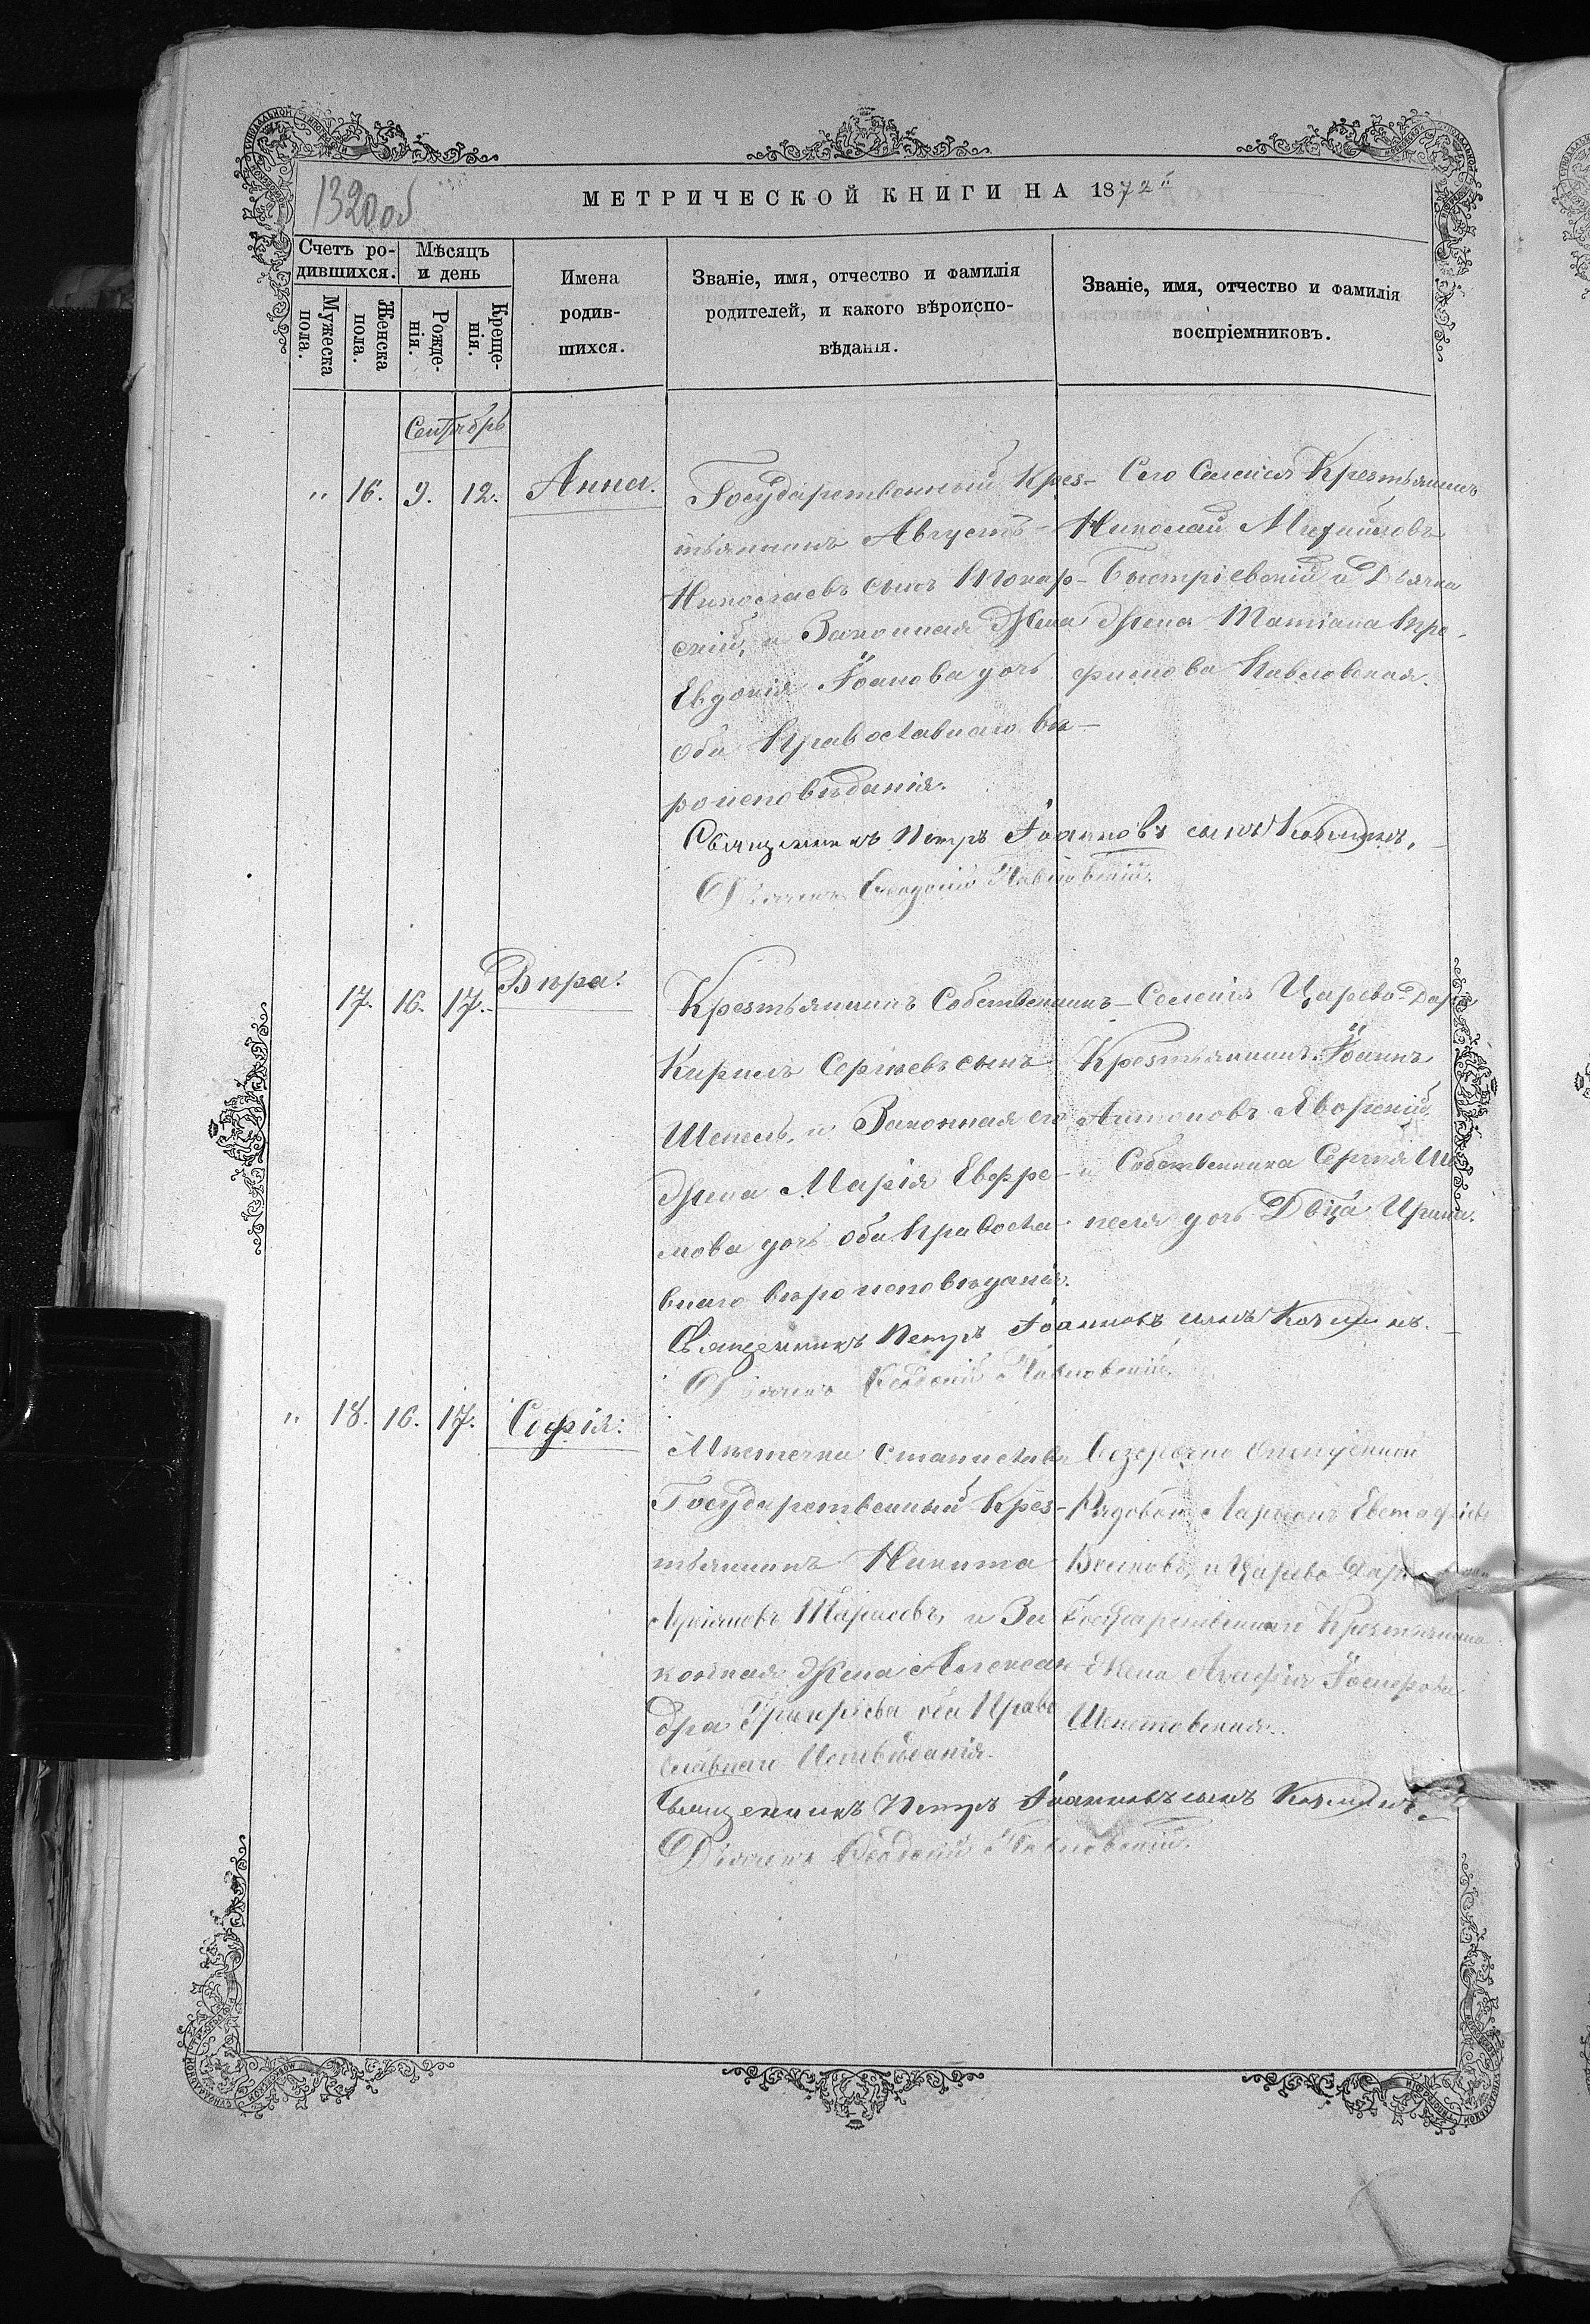 1320об
МЕТРИЧЕСКОЙ КНИГИ НА 1872й
Счетъ ро-
дившихся.
Мѣсяцъ
и день
Мужеска
пола.
Женска
пола.
Рожде-
нія.
Креще-
нія.
Имена
родив-
шихся.
Званіе, имя, отчество и фамилія
родителей, и какого вѣроиспо-
вѣданія.
Званіе, имя, отчество и фамилія
воспріемниковъ.
Сентябрь
" 16. 9. 12. Анна.
Государственный Крес-
тьянинъ Августъ
Николаевъ сынъ
скій, и Законная Жена
Евдокія Іоанова дочь
оба Православнаго вѣ-
роисповѣданія.
Сего Селенія Крестьянинъ
Николай Михайловъ
Быстріевскій и Дьячка
Жена Татіана Тро-
фимова Павловская.
Священникъ Петръ Іоанновъ сынъ
Дьячекъ Ѳеодосій Павловскій.
17. 16. 17. Вѣра.
Крестьянинъ Собственникъ
Кирилъ Сергіевъ сынъ
Шепель, и Законная его
Жена Марія Евфре-
мова дочь оба Правосла-
внаго вѣроисповѣданія.
Селенія Царево-Дара
Крестьянинъ Іоанъ
Антоновъ Яворскій
и Собственника Сергія Ше
пеля дочь Дѣвица Ирина.
Священникъ Петръ Іоанновъ сынъ
Дьячекъ Ѳеодосій Павловскій.
" 18. 16. 17. Софія:
Мѣстечка Станиславъ
Государственный Крес-
тьянинъ Никита
Тарасовъ, и За
конная Жена Алексан
дра Григоріева оба Право
славнаго Исповѣданія.
Безсрочно Отпускной
Рядовой Ларіонъ Евстафіевъ
Волковъ, и Царево Дар
Государственнаго Крестьянина
Жена Агафія Іосифова
Шепетовская.
Священникъ Петръ Іоанновъ сынъ
Дьячекъ Ѳеодосій Павловскій.